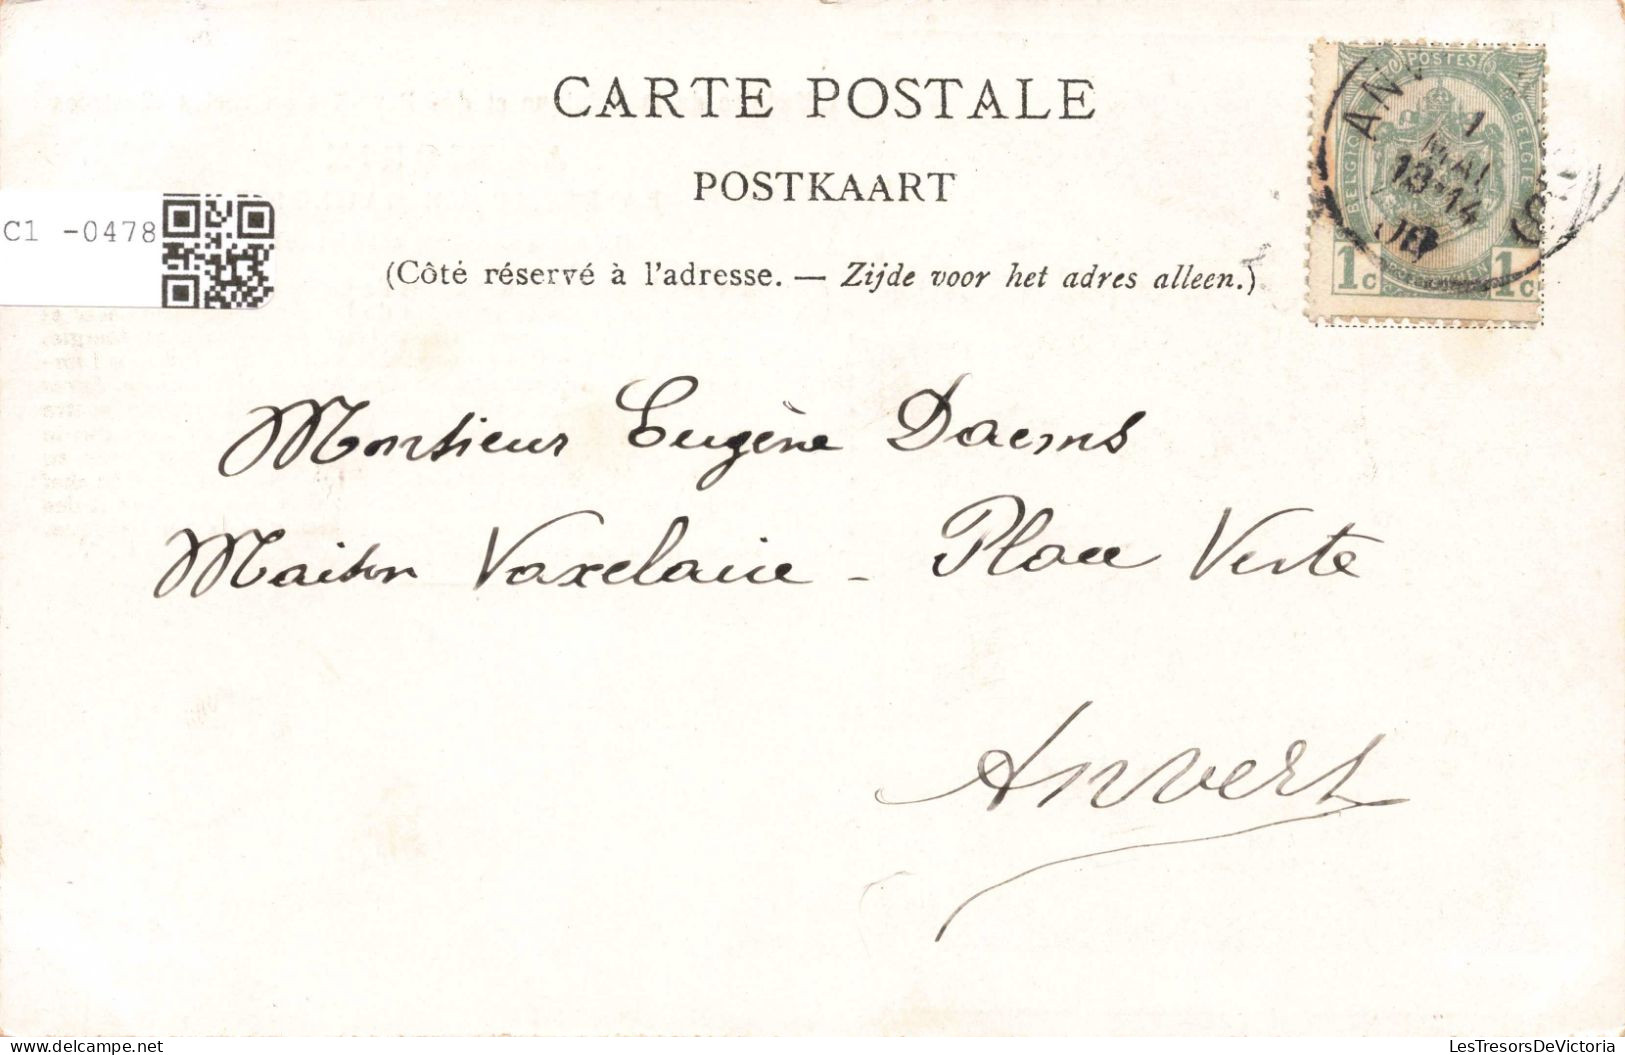 CARTE POSTALE
POSTKAART
(Côté réservé à l'adresse. — Zijde voor het adres alleen.)
C1 -0478
POSTES
BELGIQUE BELGIË
1c 1c
1
MAI
13-14
Monsieur Eugène Daems
Maison Vaxelaire - Place Verte
Anvers
LesTresorsDeVictoria